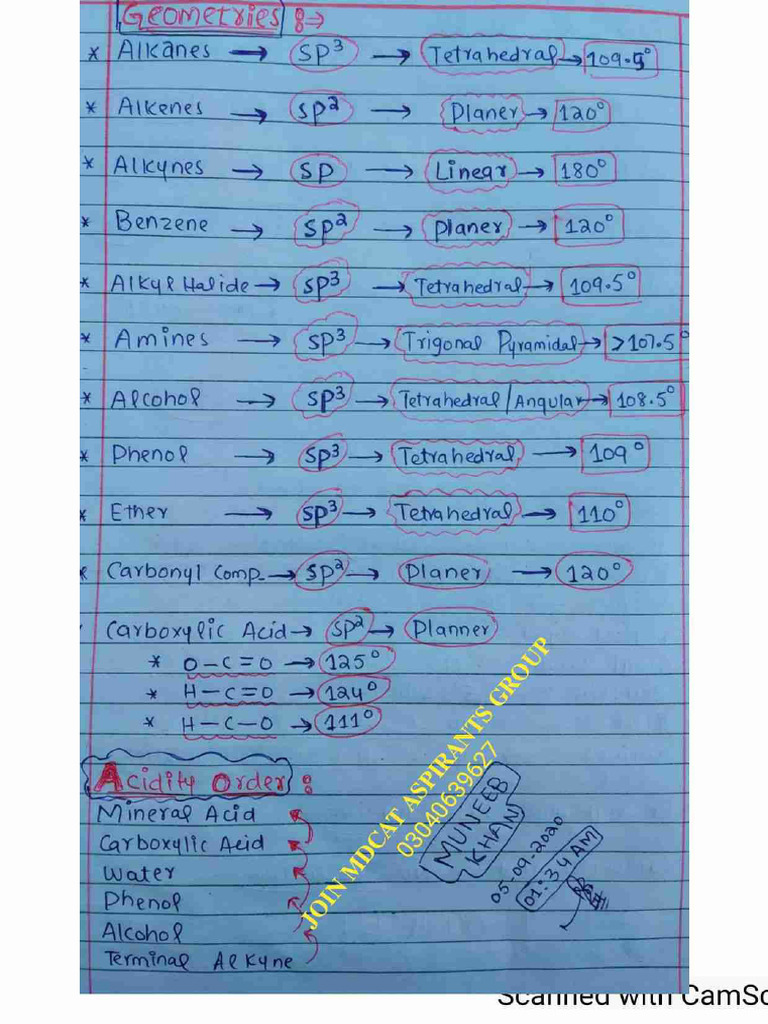 Geometries :→
* Alkanes → SP³ → Tetrahedral → 109.5°
* Alkenes → SP² → Planer → 120°
* Alkynes → SP → Linear → 180°
* Benzene → SP² → Planer → 120°
* Alkyl Halide → SP³ → Tetrahedral → 109.5°
* Amines → SP³ → Trigonal Pyramidal → >107.5°
* Alcohol → SP³ → Tetrahedral/Angular → 108.5°
* Phenol → SP³ → Tetrahedral → 109°
* Ether → SP³ → Tetrahedral → 110°
* Carbonyl Comp. → SP² → Planer → 120°
Carboxylic Acid → SP² → Planner
* O-C=O → 125°
* H-C=O → 124°
* H-C-O → 111°
Acidity Order :
Mineral Acid
Carboxylic Acid
Water
Phenol
Alcohol
Terminal Alkyne
JOIN MDCAT ASPIRANTS GROUP
03040639627
MUNEEB
KHAN
05-09-2020
01:34 AM
Scanned with CamSc